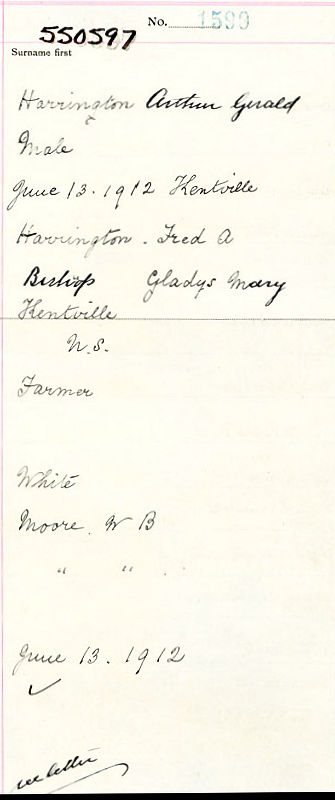 No. 1599
550597
Surname first
Harrington Arthur Gerald
Male
June 13. 1912 Kentville
Harrington. Fred A
Bishop Gladys Mary
Kentville
N.S.
Farmer
White
Moore. W B
" "
June 13. 1912
✓
see letter